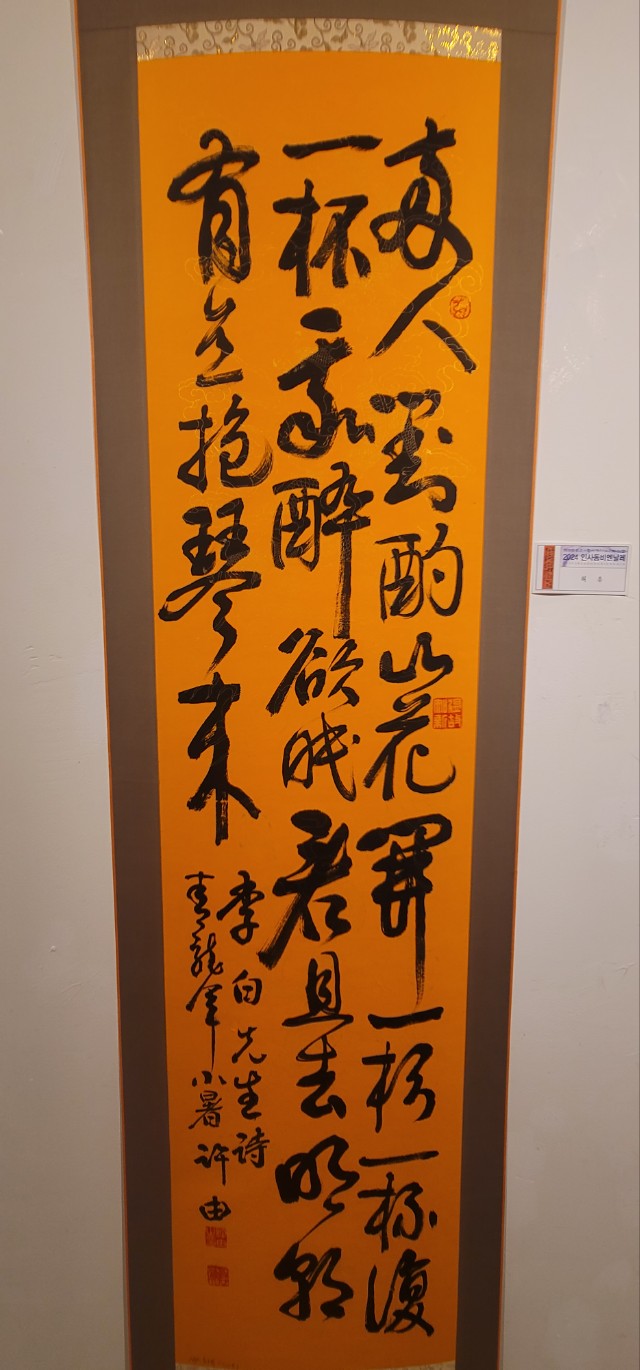 兩人對酌山花開一杯一杯復
一杯我醉欲眠君且去明朝
有意抱琴來
李白先生詩
青龍年小暑 許由
2024 인사동비엔날레
허 유